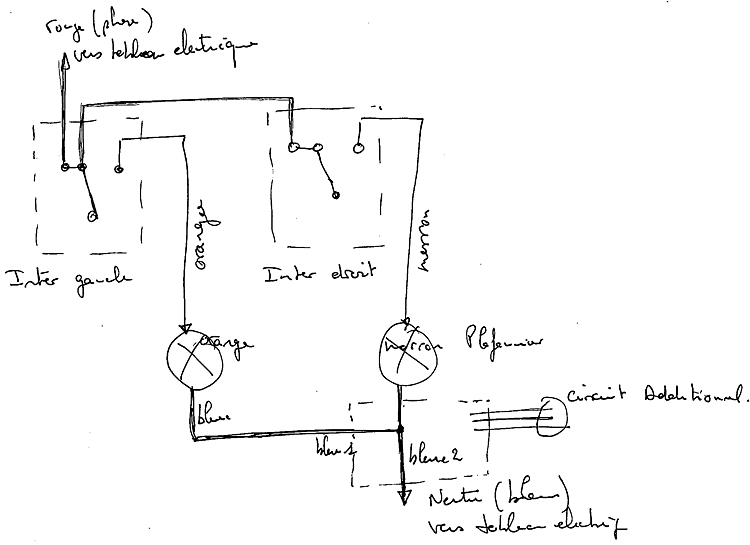 rouge (phase)
vers tableau electrique
oranger
marron
Inter gauche
Inter droit
orange
marron Plafonnier
bleu
circuit Additionnel.
bleu 1
bleue 2
Neutre (bleu)
vers tableau electriq